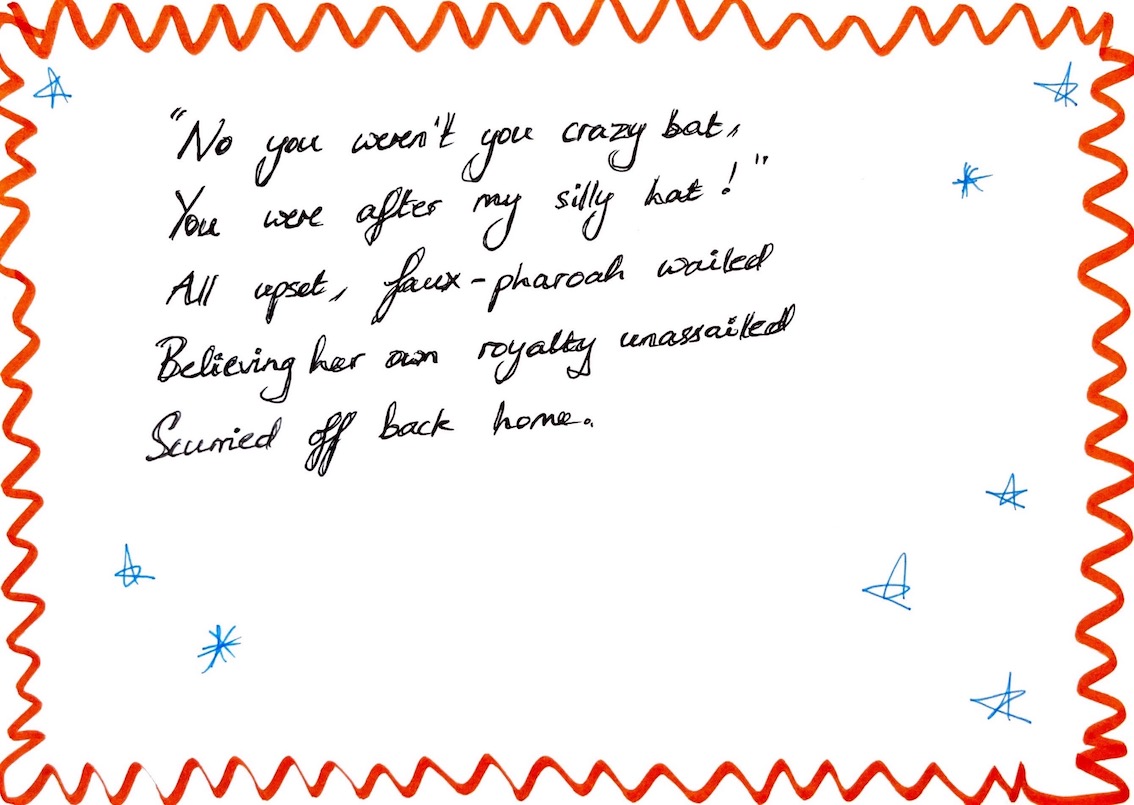 "No you weren't you crazy bat,
You were after my silly hat!"
All upset, faux-pharoah wailed
Believing her own royalty unassailed
Scurried off back home.